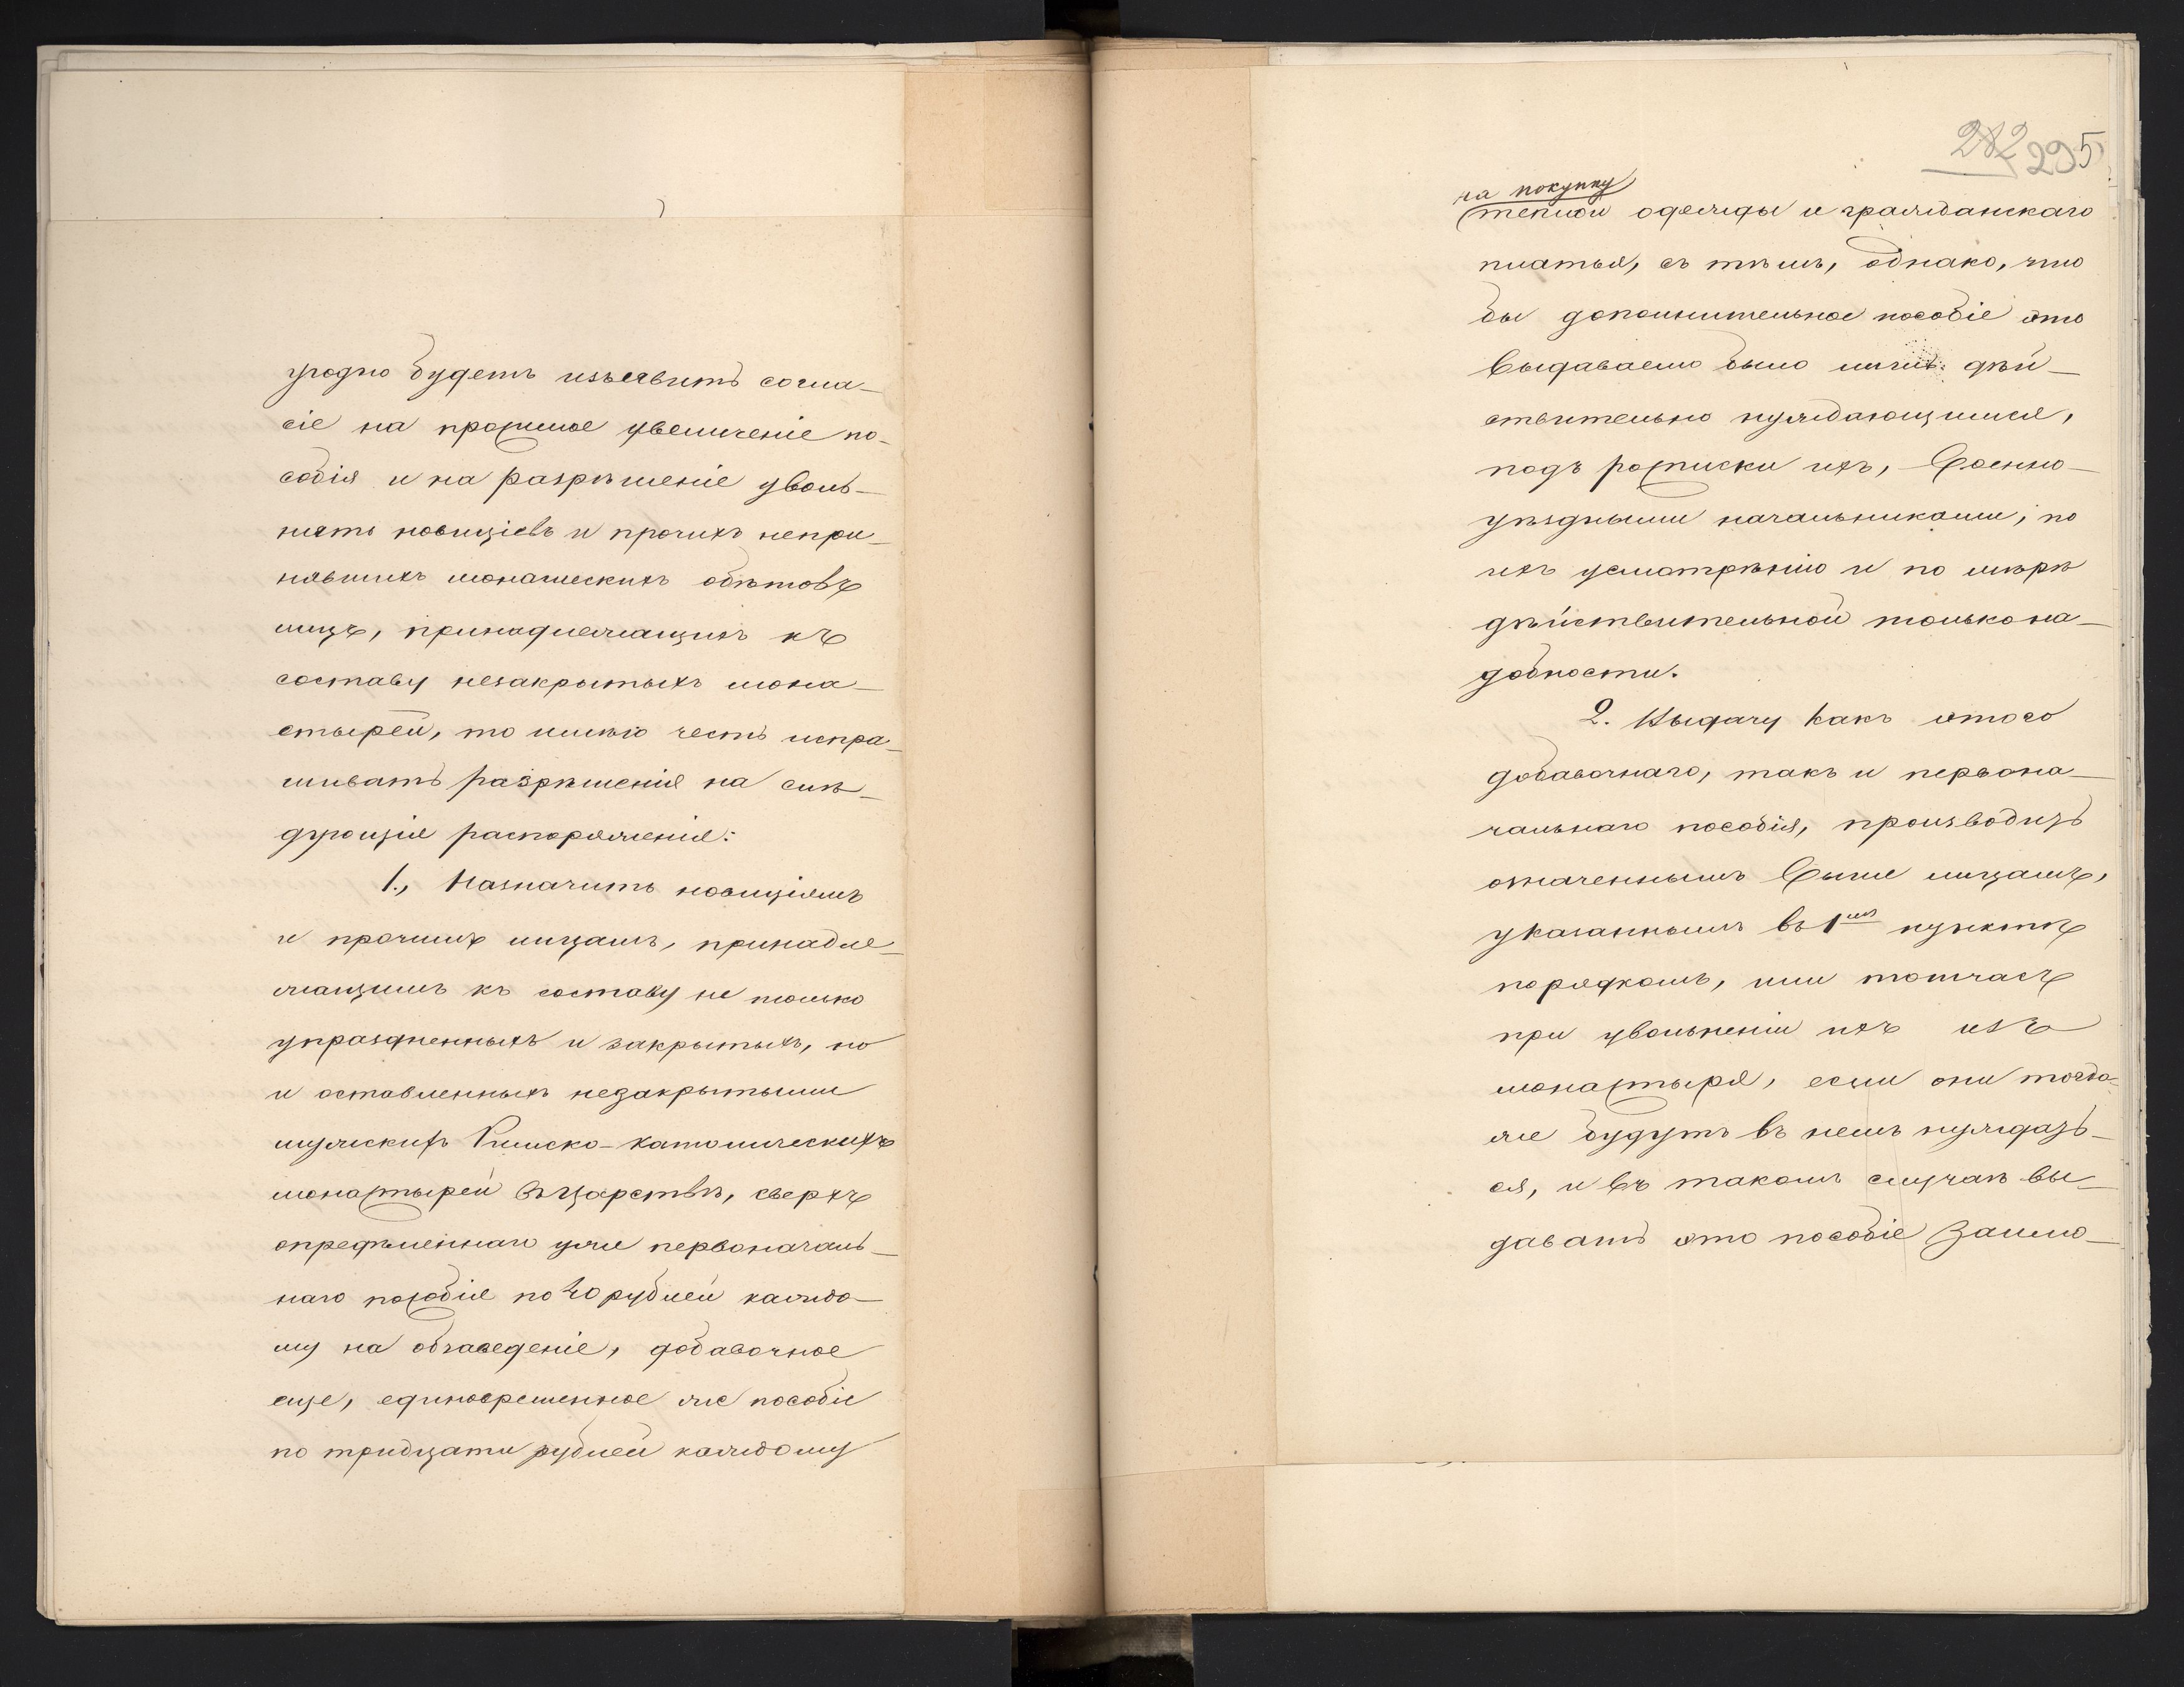 угодно будетъ изъявить согла-
сіе на прошмое увеличеніе по-
собія и на разрѣшеніе уволь-
нять новиціевъ и прочихъ непри-
нявшихъ монашескихъ обѣтовъ
лицъ, принадлежащихъ къ
составу незакрытыхъ мона-
стырей, то имѣю честь испра-
шивать разрѣшенія на слѣ-
дующія распоряженія:
1., Назначить новиціямъ
и прочимъ лицамъ, принадле-
жащимъ къ составу не только
упраздненныхъ и закрытыхъ, но
и оставленныхъ незакрытыми
мужскихъ Римско-католическихъ
монастырей въ Царствѣ, сверхъ
опредѣленнаго уже первоначаль-
наго пособія по 40 рублей каждо-
му на обзаведеніе, добавочное
еще, единовременное же пособіе
по тридцати рублей каждому
282 295
на покупку
теплой одежды и гражданскаго
платья, съ тѣмъ, однако, что
бы дополнительное пособіе это
выдаваемо было лишь дѣй-
ствительно нуждающимся,
подъ росписки ихъ, Военно-
уѣздными начальниками, по
ихъ усмотрѣнію и по мѣрѣ
дѣйствительной только на-
добности.
2. Выдачу какъ этого
добавочнаго, такъ и первона-
чальнаго пособія, производить
означеннымъ выше лицамъ,
указаннымъ въ 1мъ пунктѣ
порядкомъ, или тотчасъ
при увольненіи ихъ изъ
монастыря, если они тогда-
же будутъ въ немъ нуждать-
ся, и въ такомъ случаѣ вы-
давать это пособіе заимо-